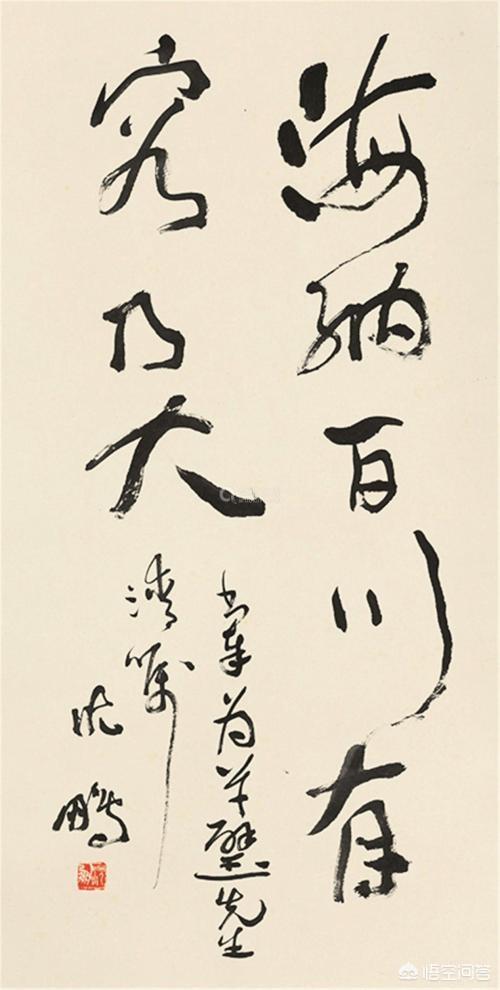 海纳百川有
容乃大
书奉为先生
清嘱
沈鹏
悟空问答